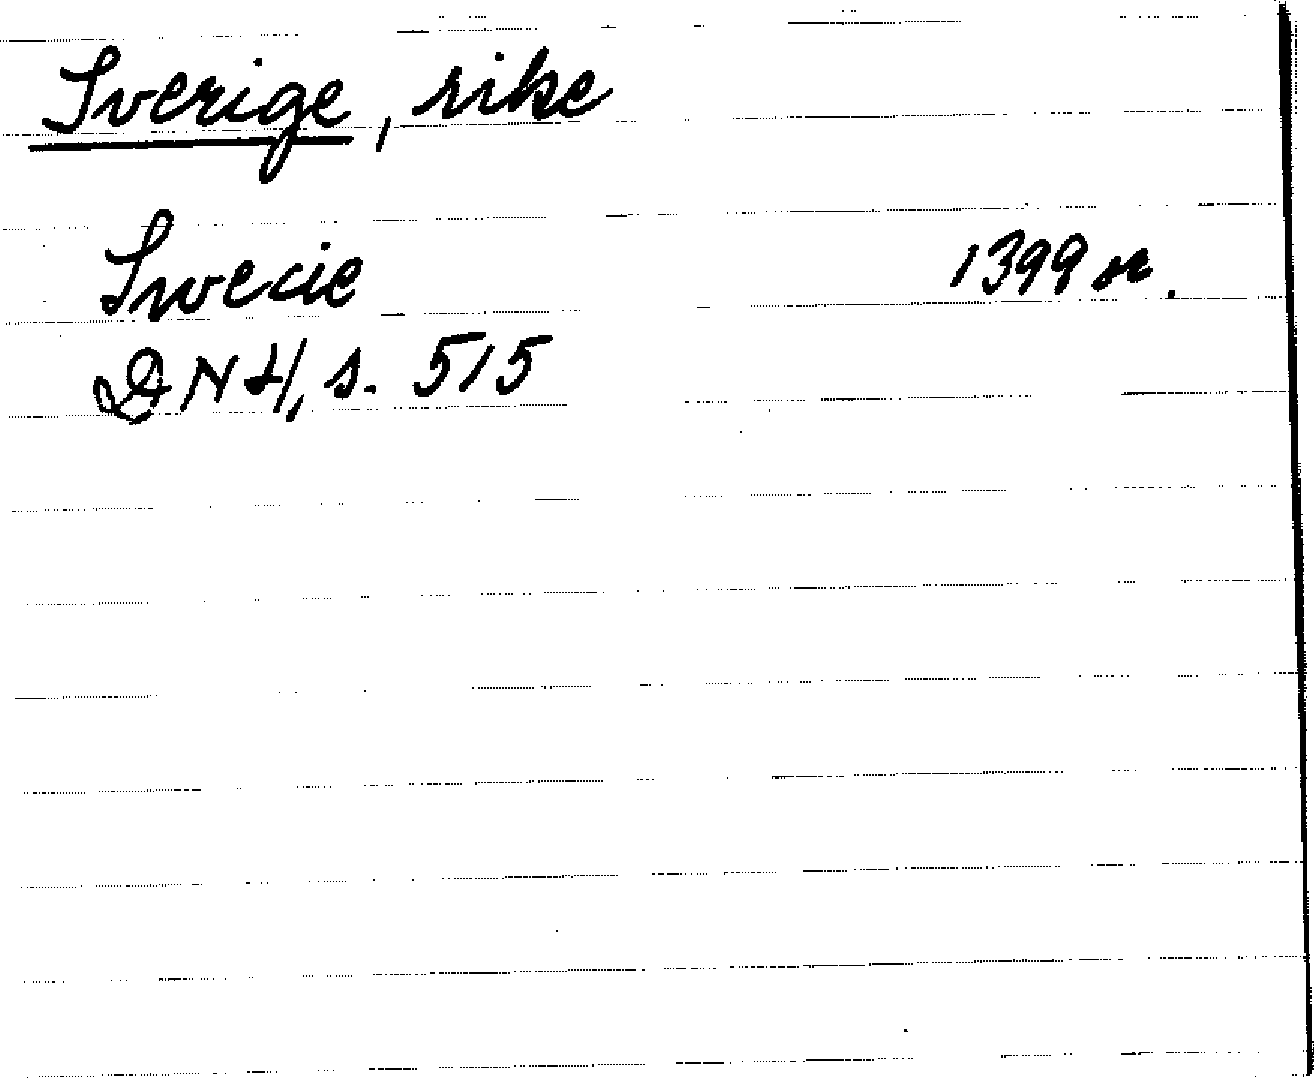 Sverige, rike
Swecie 1399 or.
DN 4, s. 515